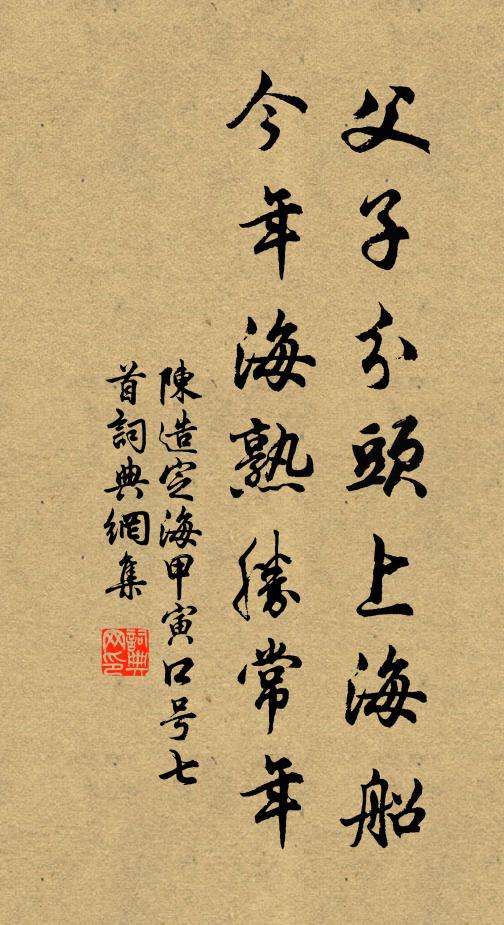 父子分頭上海船
今年海熟勝常年
陳造定海甲寅口号七
首詞典網集
詞典网印